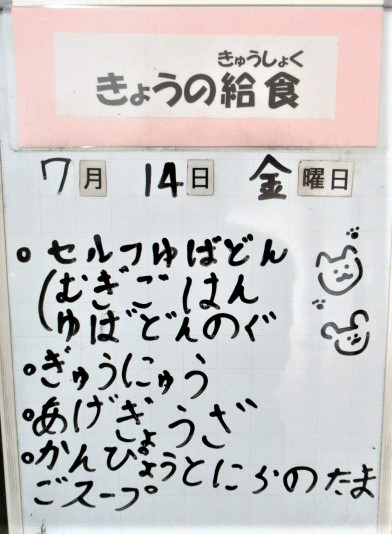 きゅうしょく
きょうの給食
7月 14日 金曜日
。セルフゆばどん
(むぎごはん
ゆばどんのぐ
。ぎゅうにゅう
。あげぎょうざ
。かんぴょうとにらのたま
ごスープ